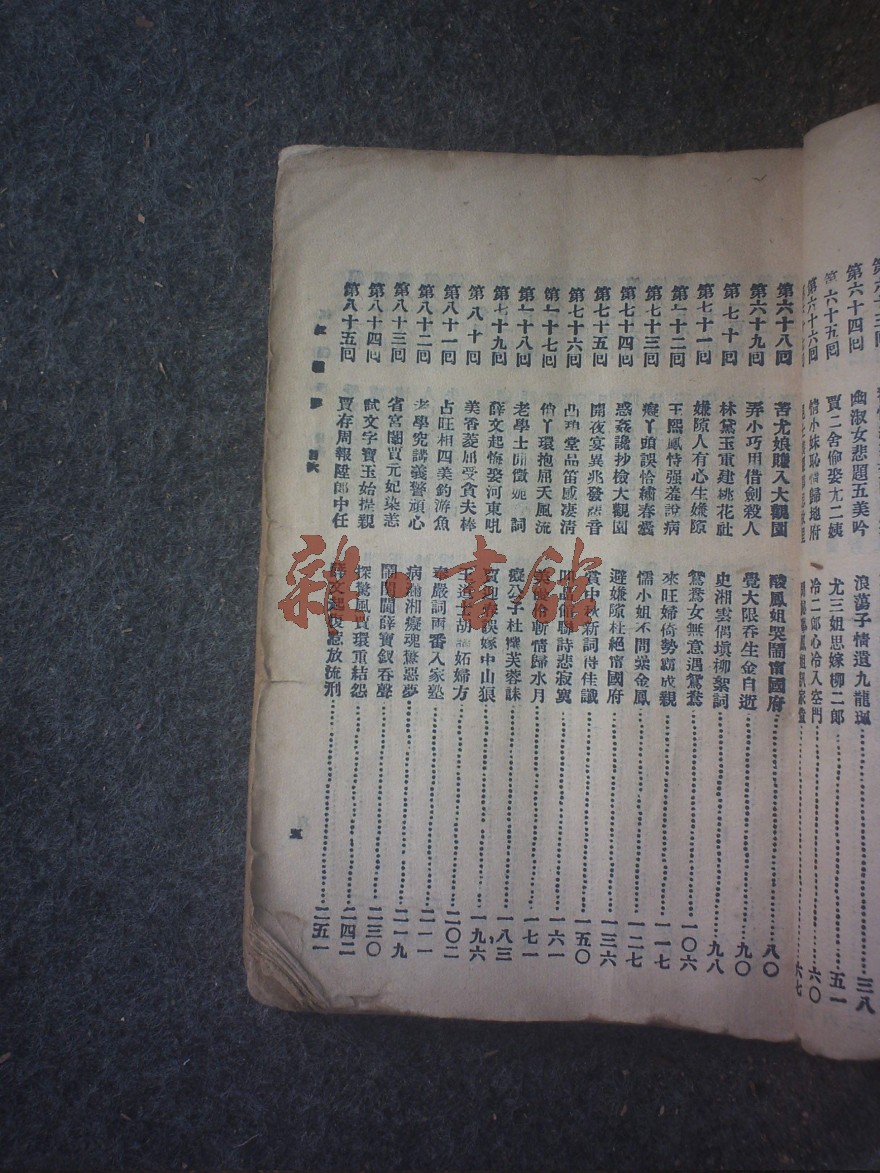 第六十四回 幽淑女悲題五美吟 浪蕩子情遺九龍珮 三八
第六十五回 賈二舍偷娶尤二姨 尤三姐思嫁柳二郎 五一
第六十六回 情小妹恥情歸地府 冷二郎心冷入空門 六〇
六七
第六十八回 苦尤娘賺入大觀園 酸鳳姐哭鬧甯國府 八〇
第六十九回 弄小巧用借劍殺人 覺大限吞生金自逝 九〇
第七十回 林黛玉重建桃花社 史湘雲偶塡柳絮詞 九八
第七十一回 嫌隙人有心生嫌隙 鴛鴦女無意遇鴛鴦 一〇六
第七十二回 王熙鳳恃强羞說病 來旺婦倚勢霸成親 一一七
第七十三回 癡丫頭誤拾繡春囊 懦小姐不問纍金鳳 一二七
第七十四回 惑奸讒抄檢大觀園 避嫌隙杜絕甯國府 一三六
第七十五回 開夜宴異兆發悲音 賞中秋新詞得佳讖 一五〇
第七十六回 凸碧堂品笛感凄淸 凹晶館聯詩悲寂寞 一六一
第七十七回 俏丫環抱屈夭風流 美優伶斬情歸水月 一七一
第七十八回 老學士閒徵姽 詞 癡公子杜撰芙蓉誄 一八三
第七十九回 薛文起悔娶河東吼 賈迎春誤嫁中山狼 一九六
第八十回 美香菱屈受貪夫棒 王道士胡謅妬婦方 二〇二
第八十一回 占旺相四美釣游魚 奉嚴詞兩番入家塾 二一一
第八十二回 老學究講義警頑心 病瀟湘癡魂驚惡夢 二一九
第八十三回 省宮闈賈元妃染恙 鬧閨閫薛寶釵吞聲 二三〇
第八十四回 試文字寶玉始提親 探驚風賈環重結怨 二四二
第八十五回 賈存周報陞郎中任 薛文起復惹放流刑 二五一
紅樓夢 目次 五
雜·書館